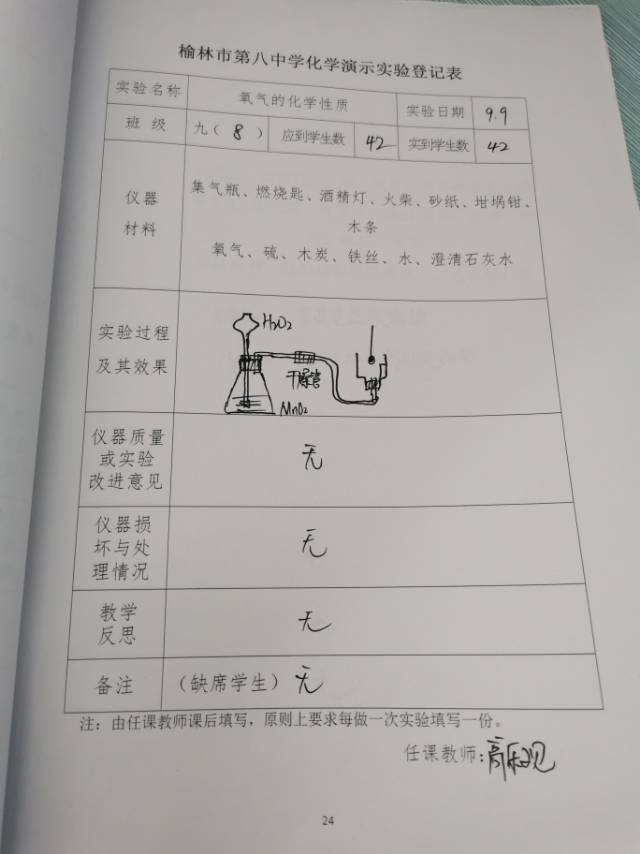 榆林市第八中学化学演示实验登记表
实验名称 氧气的化学性质 实验日期 9.9
班 级 九（ 8 ） 应到学生数 42 实到学生数 42
仪器
材料
集气瓶、燃烧匙、酒精灯、火柴、砂纸、坩埚钳、
木条
氧气、硫、木炭、铁丝、水、澄清石灰水
实验过程
及其效果
H₂O₂
干燥管
MnO₂
仪器质量
或实验
改进意见
无
仪器损
坏与处
理情况
无
教学
反思
无
备注 （缺席学生） 无
注：由任课教师课后填写，原则上要求每做一次实验填写一份。
任课教师：高
24